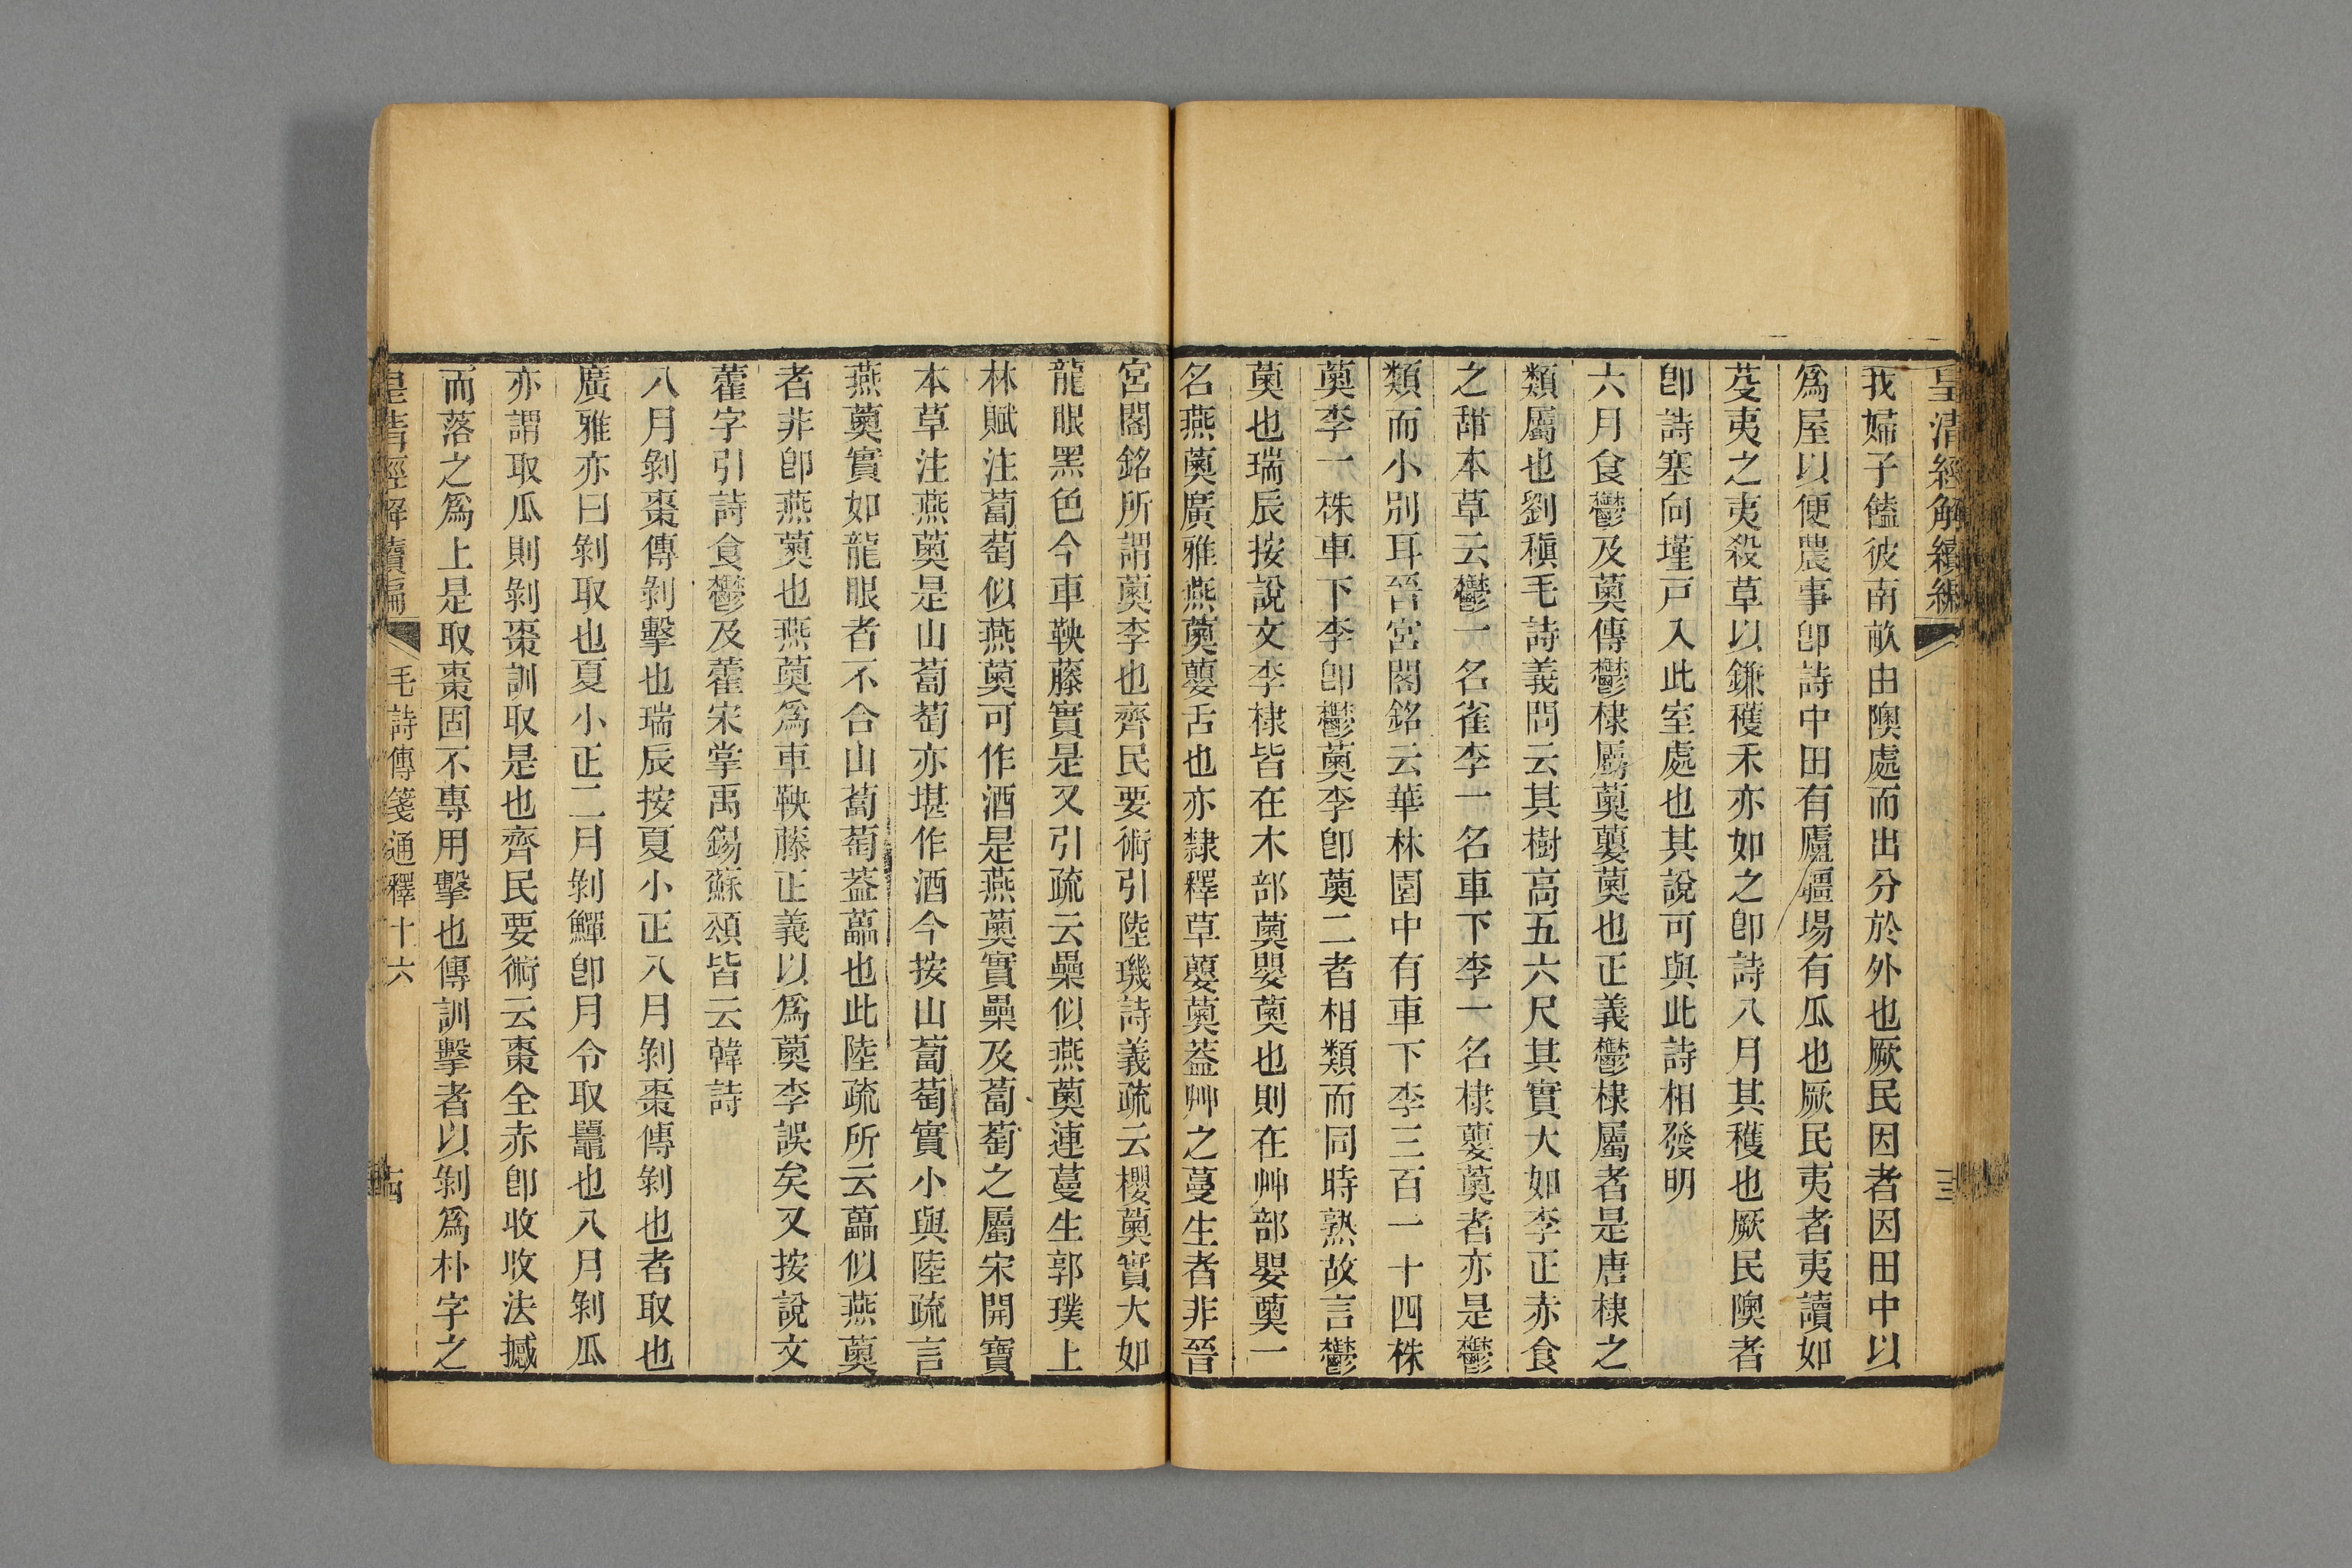 皇清經解續編
我婦子饁彼南畝由隩處而出分於外也厥民因者因田中以
爲屋以便農事卽詩中田有廬疆場有瓜也厥民夷者夷讀如
芟夷之夷殺草以鎌穫禾亦如之卽詩八月其穫也厥民隩者
卽詩塞向墐戸入此室處也其說可與此詩相發明
六月食鬱及薁傳鬱棣屬薁蘡薁也正義鬱棣屬者是唐棣之
類屬也劉稹毛詩義問云其樹高五六尺其實大如李正赤食
之甜本草云鬱一名雀李一名車下李一名棣蘡薁者亦是鬱
類而小別耳晉宮閣銘云華林園中有車下李三百一十四株
薁李一株車下李卽鬱薁李卽薁二者相類而同時熟故言鬱
薁也瑞辰按說文李棣皆在木部薁嬰薁也則在艸部嬰薁一
名燕薁廣雅燕薁蘡舌也亦隸釋草蘡薁葢艸之蔓生者非晉
宮閣銘所謂薁李也齊民要術引陸璣詩義疏云櫻薁實大如
龍眼黑色今車鞅藤實是又引疏云櫐似燕薁連蔓生郭璞上
林賦注蔔萄似燕薁可作酒是燕薁實櫐及蔔萄之屬宋開寶
本草注燕薁是山蔔萄亦堪作酒今按山蔔萄實小與陸疏言
燕薁實如龍眼者不合山蔔萄葢藟也此陸疏所云藟似燕薁
者非卽燕薁也燕薁爲車鞅藤正義以爲薁李誤矣又按說文
藿字引詩食鬱及藿宋掌禹錫蘇頌皆云韓詩
八月剝棗傳剝擊也瑞辰按夏小正八月剝棗傳剝也者取也
廣雅亦曰剝取也夏小正二月剝鱓卽月令取鼉也八月剝瓜
亦謂取瓜則剝棗訓取是也齊民要術云棗全赤卽收收法撼
而落之爲上是取棗固不專用擊也傳訓擊者以剝爲朴字之
皇清經解續編 毛詩傳箋通釋十六 十四